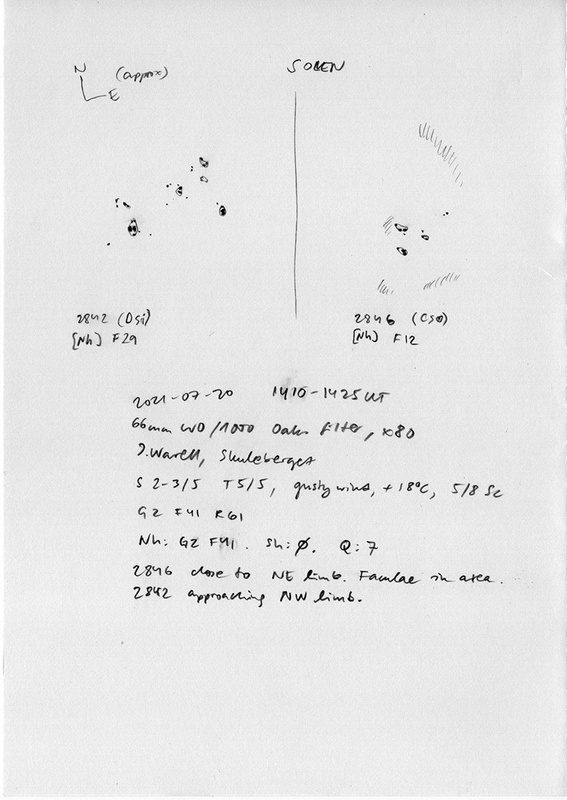 N
(approx)
E
SOLEN
2842 (Dsi)
[Nh] F29
2846 (Cso)
[Nh] F12
2021-07-20 1410-1425UT
66mm WO / 1000 Oaks Filter, x80
J. Warell, Skuleberget
S 2-3/5 T5/5, gusty wind, +18°C, 5/8 Sc
G2 F41 R61
Nh: G2 F41. Sh: Ø. Q: 7
2846 close to NE limb. Faculae in area.
2842 approaching NW limb.